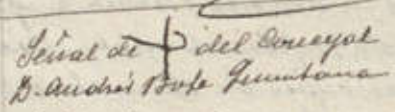 Señal de + del Concejal
D. Andrés Bofe Quintana